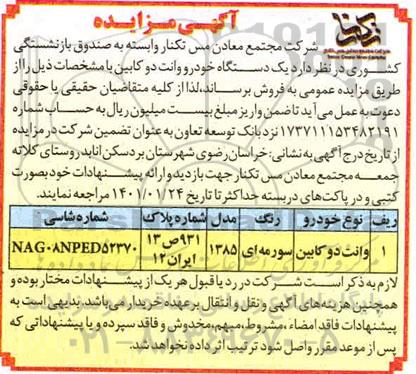 آگهی مزایده
تکنار
شرکت مجتمع معادن مس تکنار وابسته به صندوق بازنشستگی
کشوری در نظر دارد یک دستگاه خودرو وانت دو کابین با مشخصات ذیل را از
طریق مزایده عمومی به فروش برساند، لذا از کلیه متقاضیان حقیقی یا حقوقی
دعوت به عمل می آید تا ضمن واریز مبلغ بیست میلیون ریال به حساب شماره
۱۷۳۷۱۱۱۵۳۴۸۲۱۹۱ نزد بانک توسعه تعاون به عنوان تضمین شرکت در مزایده
از تاریخ درج آگهی به نشانی: خراسان رضوی شهرستان بردسکن انابد روستای کلاته
جمعه مجتمع معادن مس تکنار جهت بازدید و ارائه پیشنهادات خود بصورت
کتبی و در پاکت‌های دربسته حداکثر تا تاریخ ۱۴۰۱/۰۱/۲۴ مراجعه نمایند.
ردیف نوع خودرو رنگ مدل شماره پلاک شماره شاسی
۱ وانت دو کابین سورمه ای ۱۳۸۵ ۹۳۱ص۱۳ ایران۱۲ NAG۰ANPED۵۲۳۷۰
لازم به ذکر است شرکت در رد یا قبول هر یک از پیشنهادات مختار بوده و
همچنین هزینه های آگهی و نقل و انتقال بر عهده خریدار می باشد. بدیهی است به
پیشنهادات فاقد امضاء، مشروط، مبهم، مخدوش و فاقد سپرده و یا پیشنهاداتی که
پس از موعد مقرر واصل شود ترتیب اثر داده نخواهد شد.